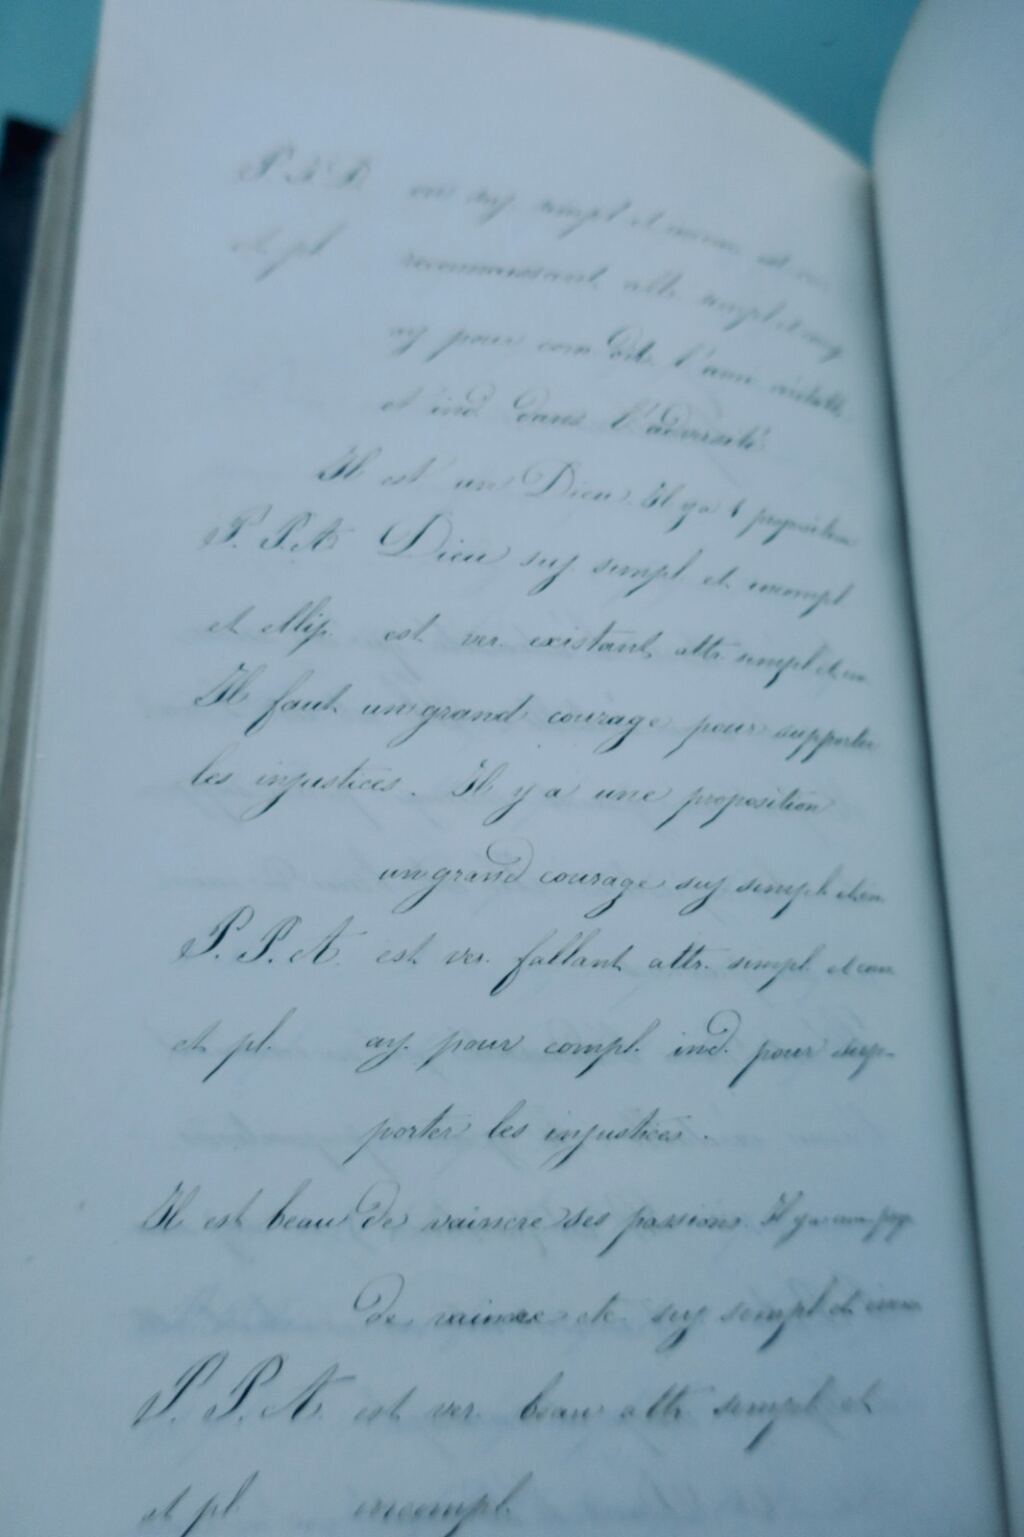 P. P. A. on suj. simpl. et incom. est ver.
et pl. reconnaissant, attr. simpl. et comp.
ay. pour com. dir. l'ami véritable
et ind. dans l'adversité.
Il est un Dieu. Il y a 1 proposition
P. P. A. Dieu suj. simpl. et incompl.
et ellip. est ver. existant, attr. simpl. et in.
Il faut un grand courage pour supporter
les injustices. Il y a une proposition
un grand courage suj. simpl. et in.
P. P. A. est ver. fallant attr. simpl. et com.
et pl. ay. pour compl. ind. pour sup-
porter les injustices.
Il est beau de vaincre ses passions. Il y a une prop.
de vaincre etc suj. simpl. et incom.
P. P. A. est ver. beau attr. simpl. et
et pl. incompl.